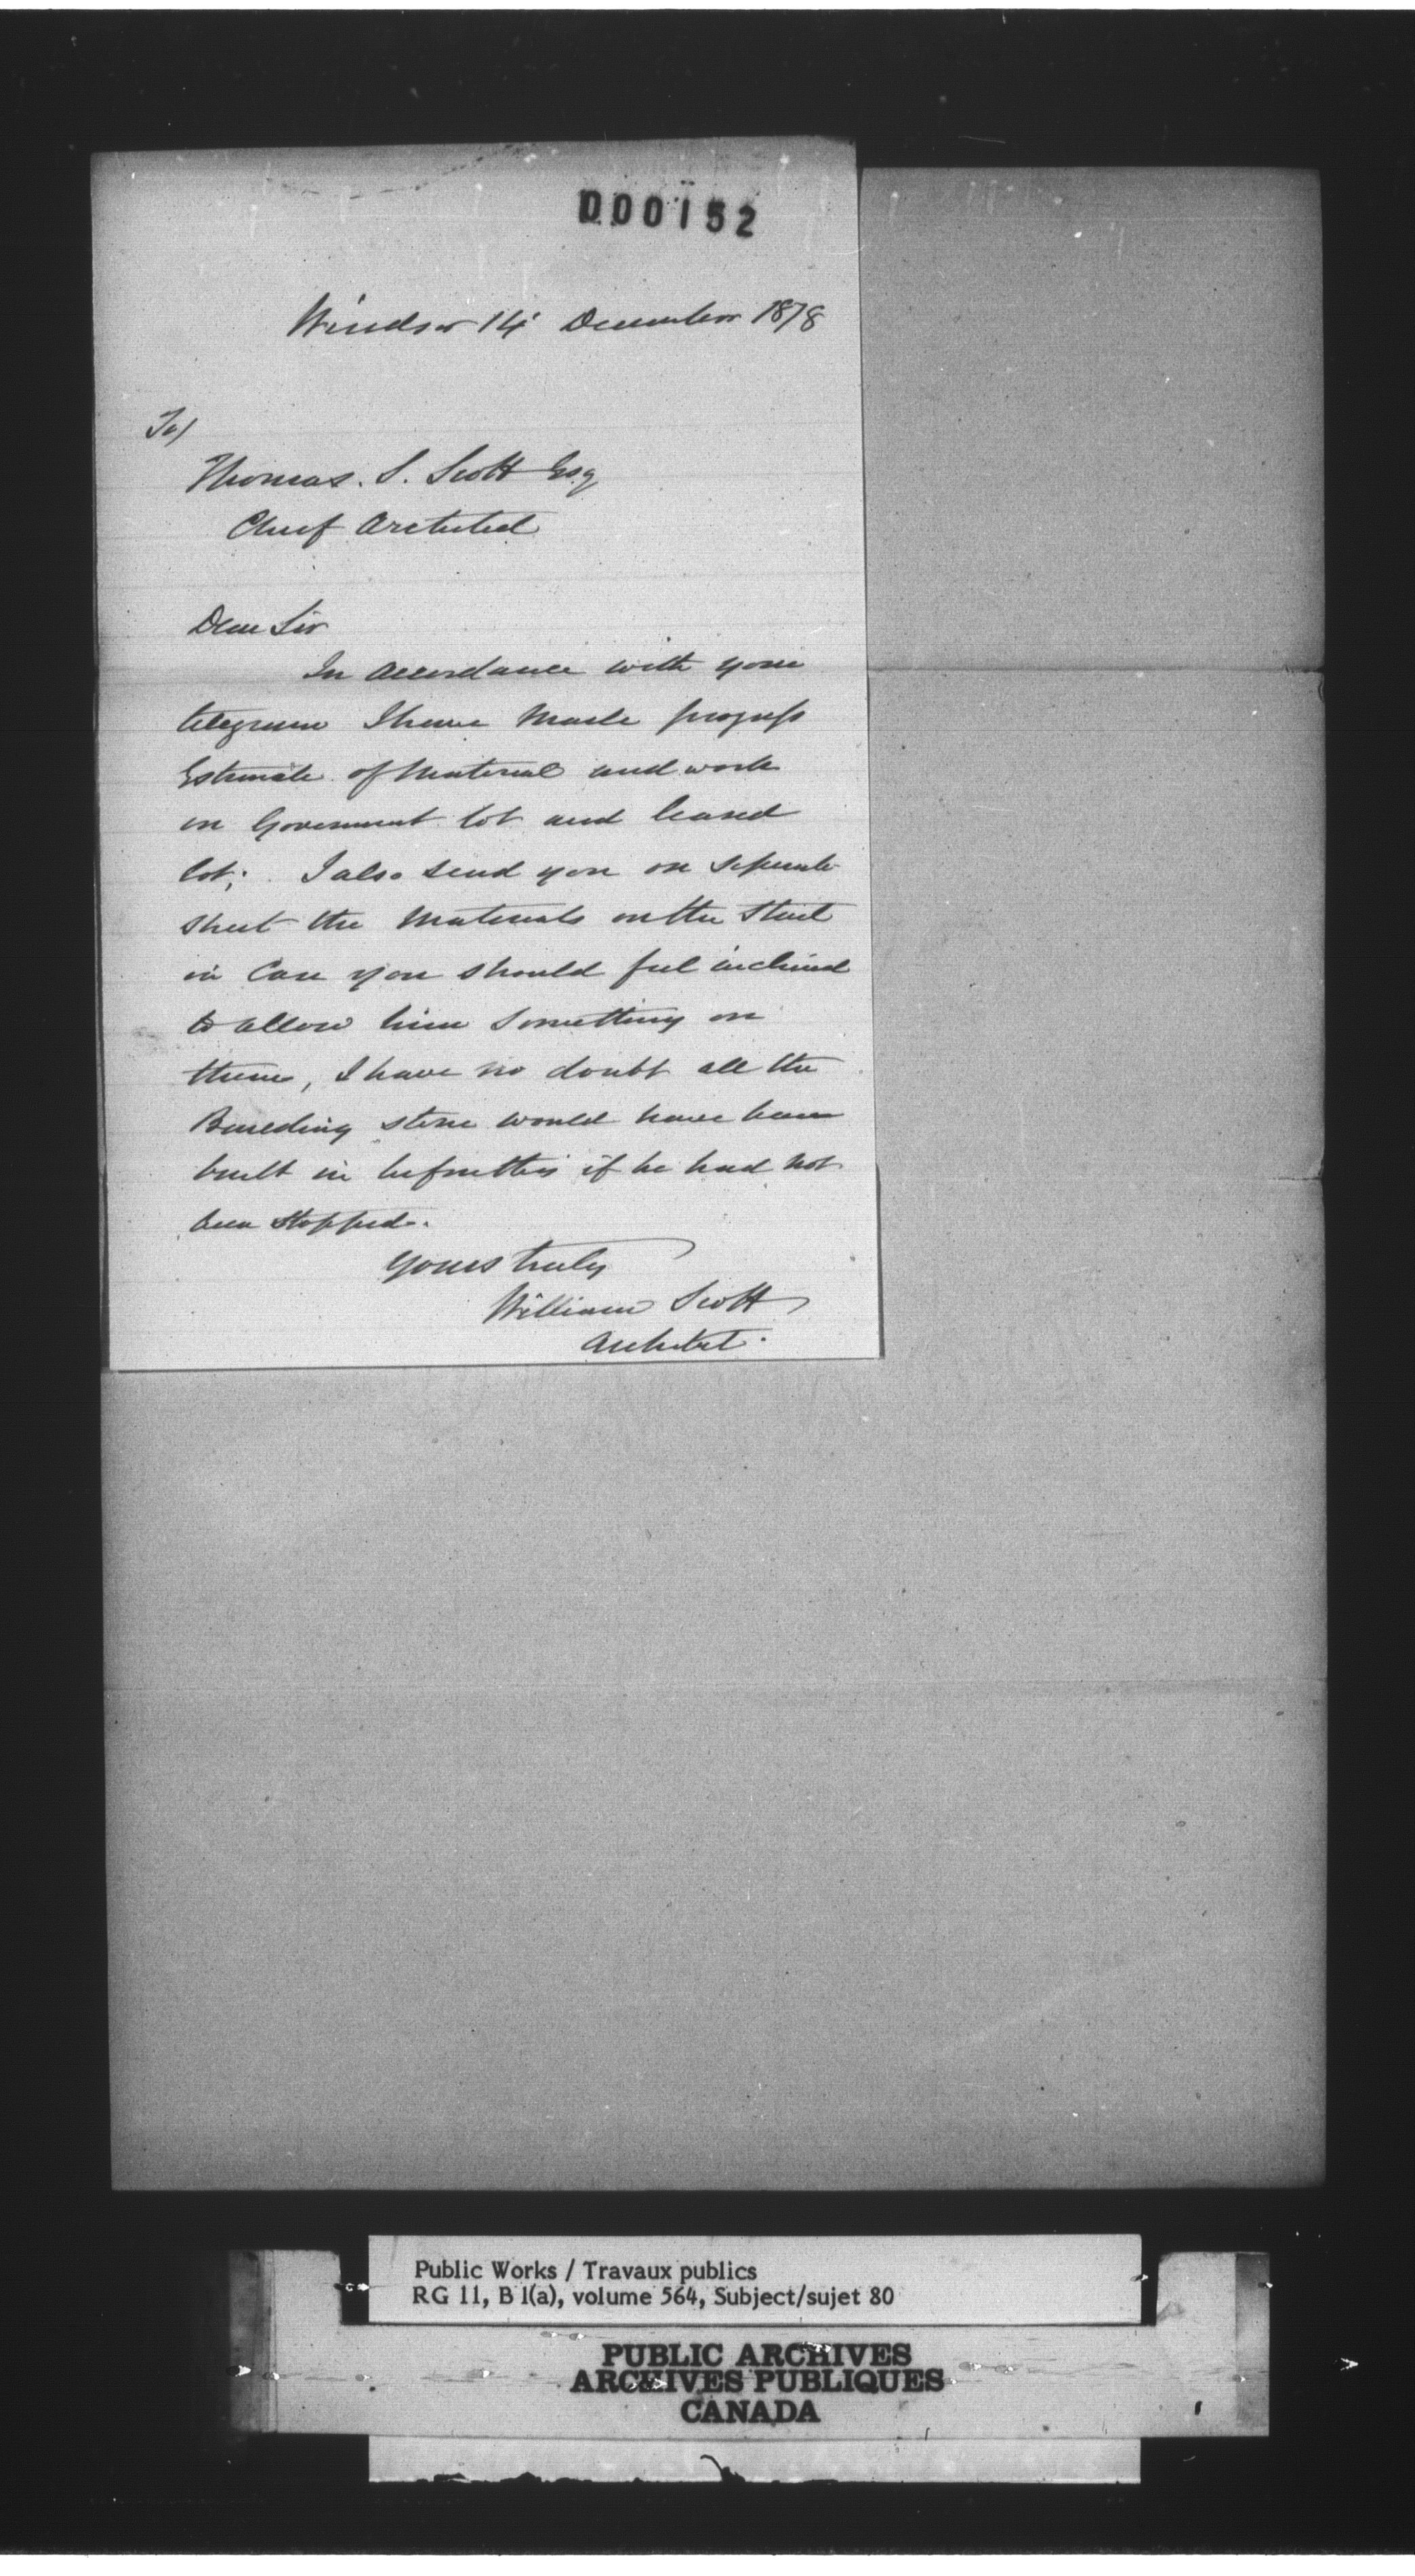 000152
Windsor 14 December 1878
To/
Thomas. S. Scott Esq
Chief Architect
Dear Sir
In accordance with your
telegram I have made progress
Estimate of Material and work
on Government lot and leased
lot; I also send you on seperate
sheet the Materials on the Street
in Case you should feel inclined
to allow him something on
them, I have no doubt all the
Building stone would have been
built in before this if he had not
been stopped.
Yours truly
William Scott
Architect.
Public Works / Travaux publics
RG 11, B 1(a), volume 564, Subject/sujet 80
PUBLIC ARCHIVES
ARCHIVES PUBLIQUES
CANADA